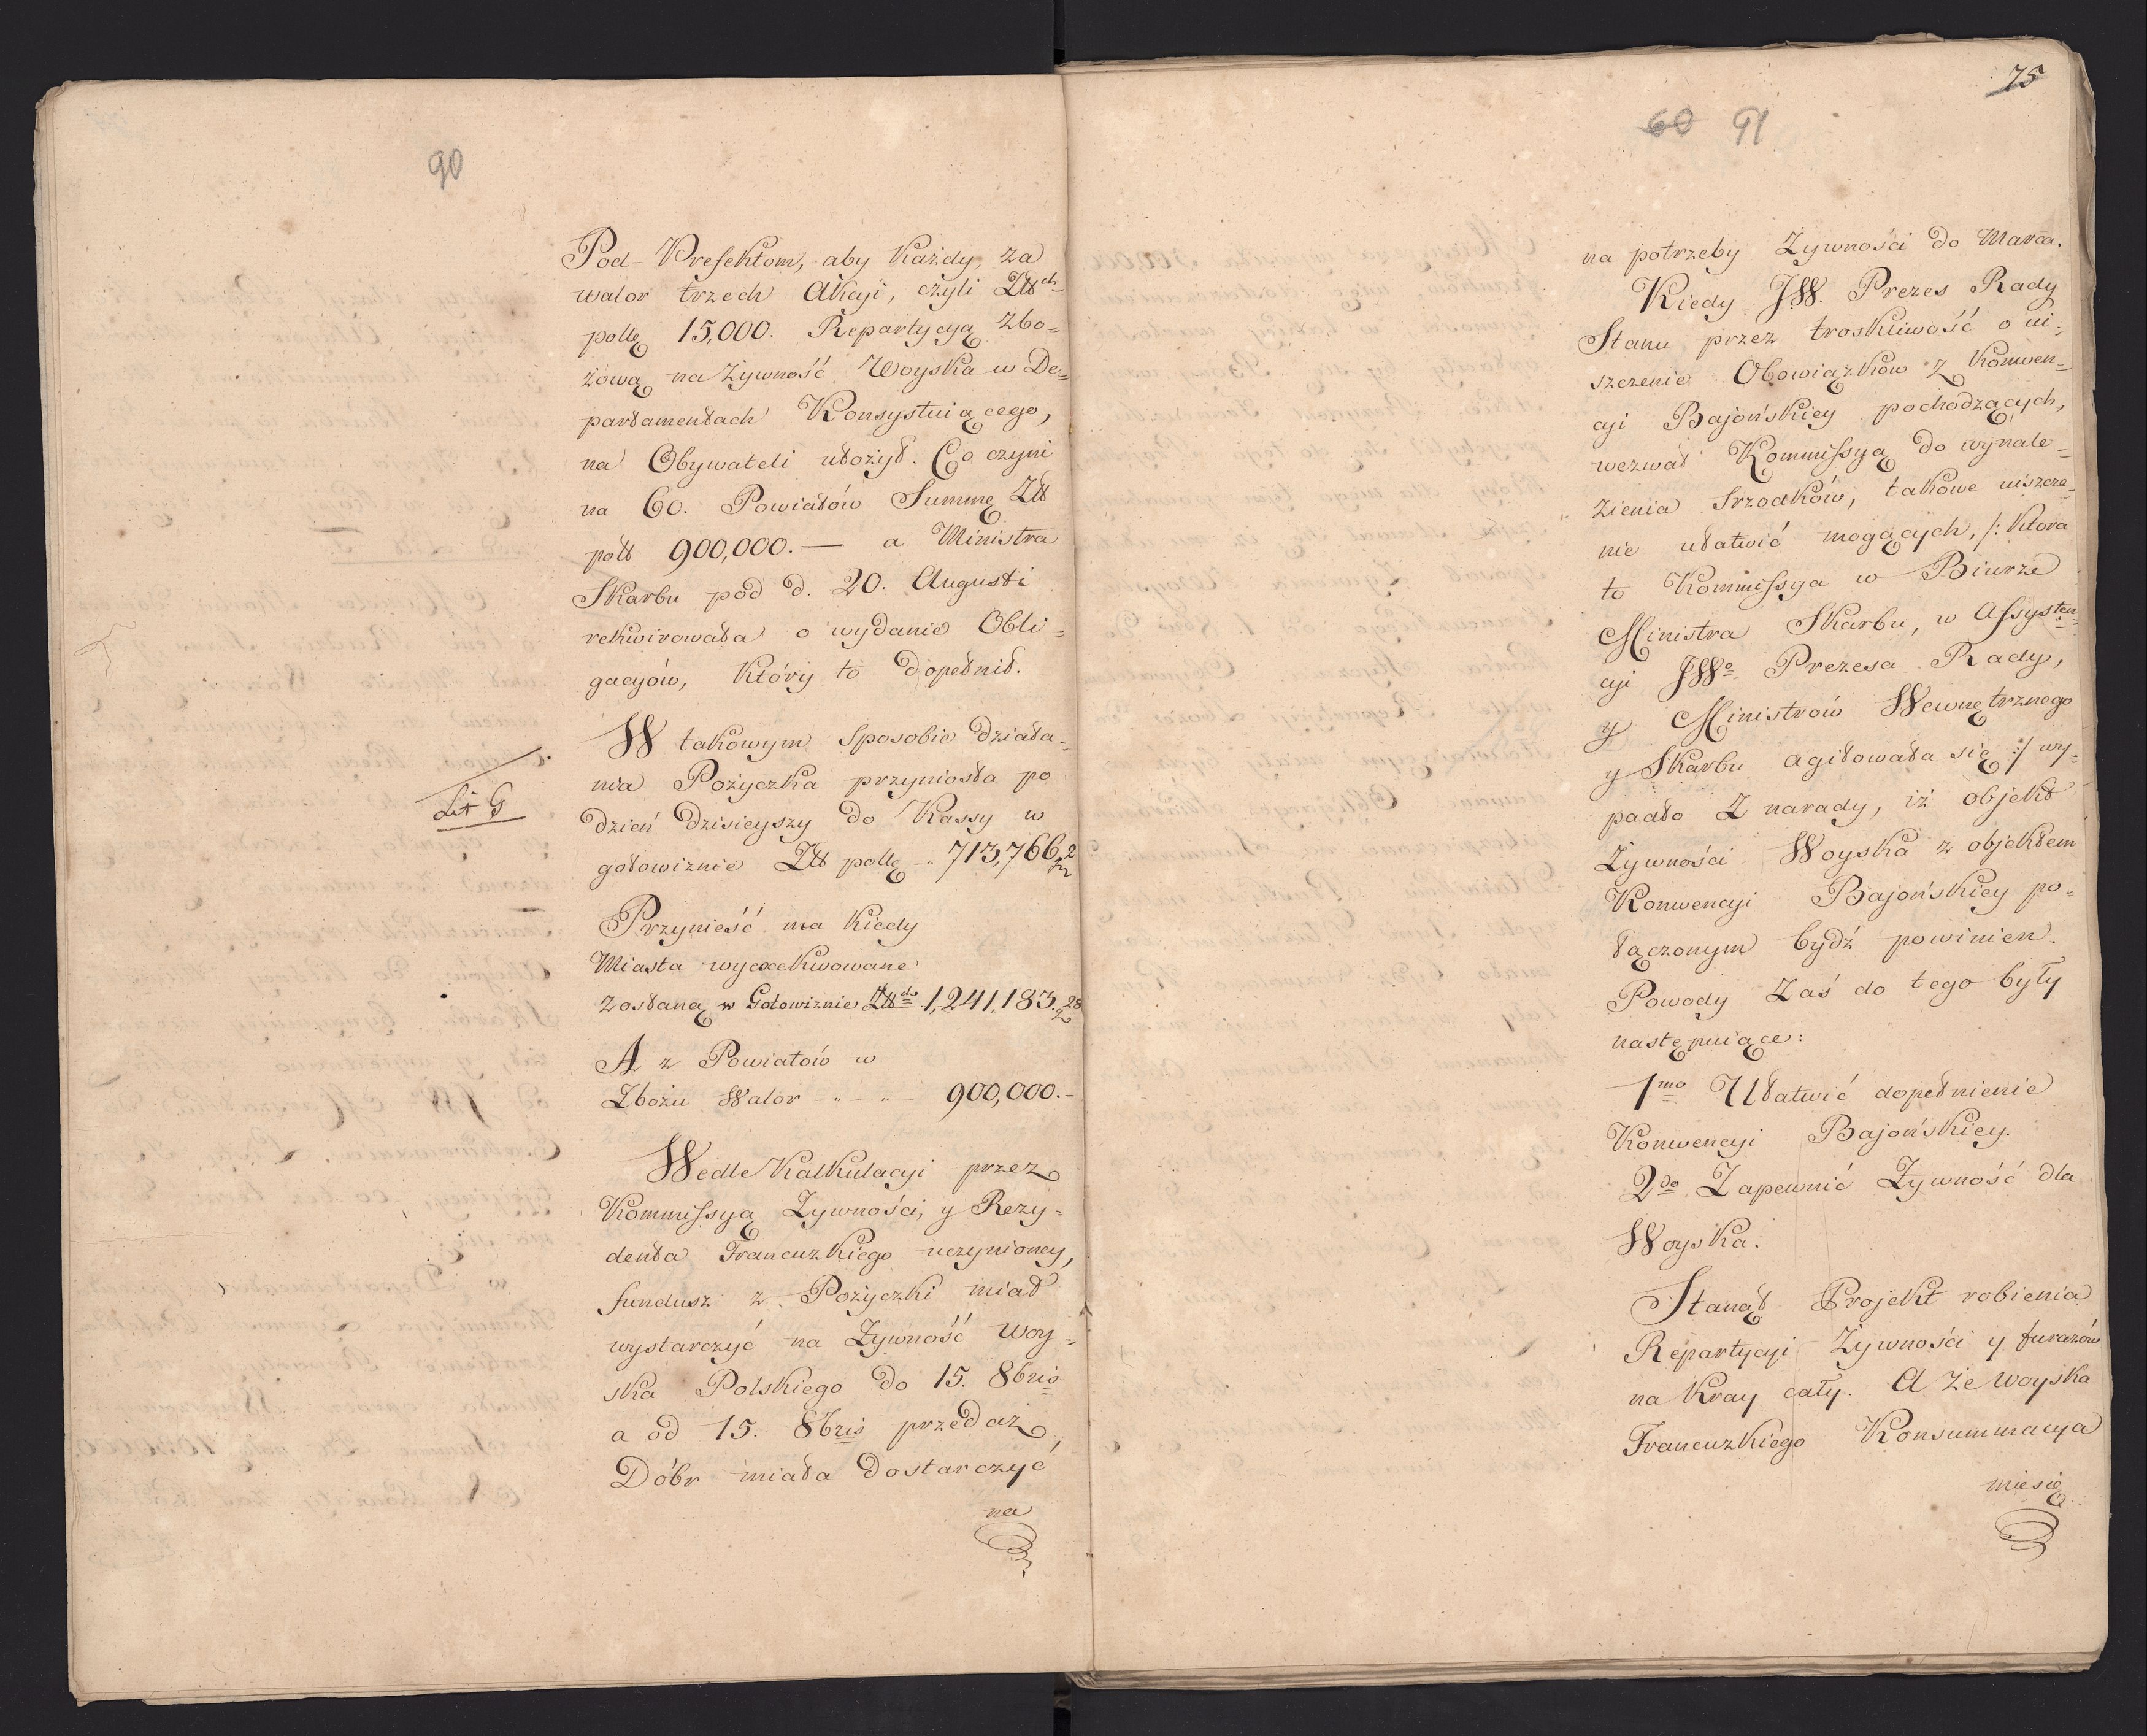 90
Pod-Prefektom, aby każdy, za
walor trzech Akcyi, czyli Złłch
pollę 15,000. Repartycyą zbo=
żową na żywność Woyska w De=
partamentach Konsystuiącego,
na Obywateli ułożył. Co czyni
na 60. Powiatów Summę Złł
poll 900,000.— a Ministra
Skarbu pod d. 20. Augusti
rekwirowała o wydanie Obli=
gacyów, Który to dopełnił.
W takowym Sposobie działa=
nia Pożyczka przyniosła po
Lit G
dzień dzisieyszy do Kassy w
gotowiznie Złł pollę -.. 713,766,2
Przynieść ma kiedy
Miasta wyexekwowane
zostaną w Gotowiznie Złłch 1,241,183.28
A z Powiatów w
Zbożu Walor - .. - .. - 900,000.-
Wedle Kalkulacyi przez
Kommissyą Żywności, y Rezy=
denta Francuzkiego uczynioney,
fundusz z Pożyczki miał
wystarczyć na Żywność Woy=
ska Polskiego do 15. 8bris
a od 15. 8bris przedaż
Dóbr miała dostarczyć
na
75
60 91
na potrzeby Żywności do Marca.
Kiedy JW. Prezes Rady
Stanu przez troskliwość o ui=
szczenie Obowiązków z Konwen=
cyi Bajońskiey pochodzących,
wezwał Kommissyą do wynale=
zienia Srzodków, takowe uiszcze=
nie ułatwić mogących, /: Ktora
to Kommissya w Biurze
Ministra Skarbu, w Assysten=
cyi JWo Prezesa Rady,
y Ministrów Wewnętrznego
y Skarbu agitowała się :/ wy=
padło z narady, iż objekt
Żywności Woyska z objektem
Konwencyi Bajońskiey po=
łączonym bydź powinien.
Powody zaś do tego były
następuiące:
1mo Ułatwić dopełnienie
Konwencyi Bajońskiey.
2do Zapewnić Żywność dla
Woyska.
Stanął Projekt robienia
Repartycyi Żywności y furażów
na Kray cały. A że Woyska
Francuzkiego Konsummacya
miesię